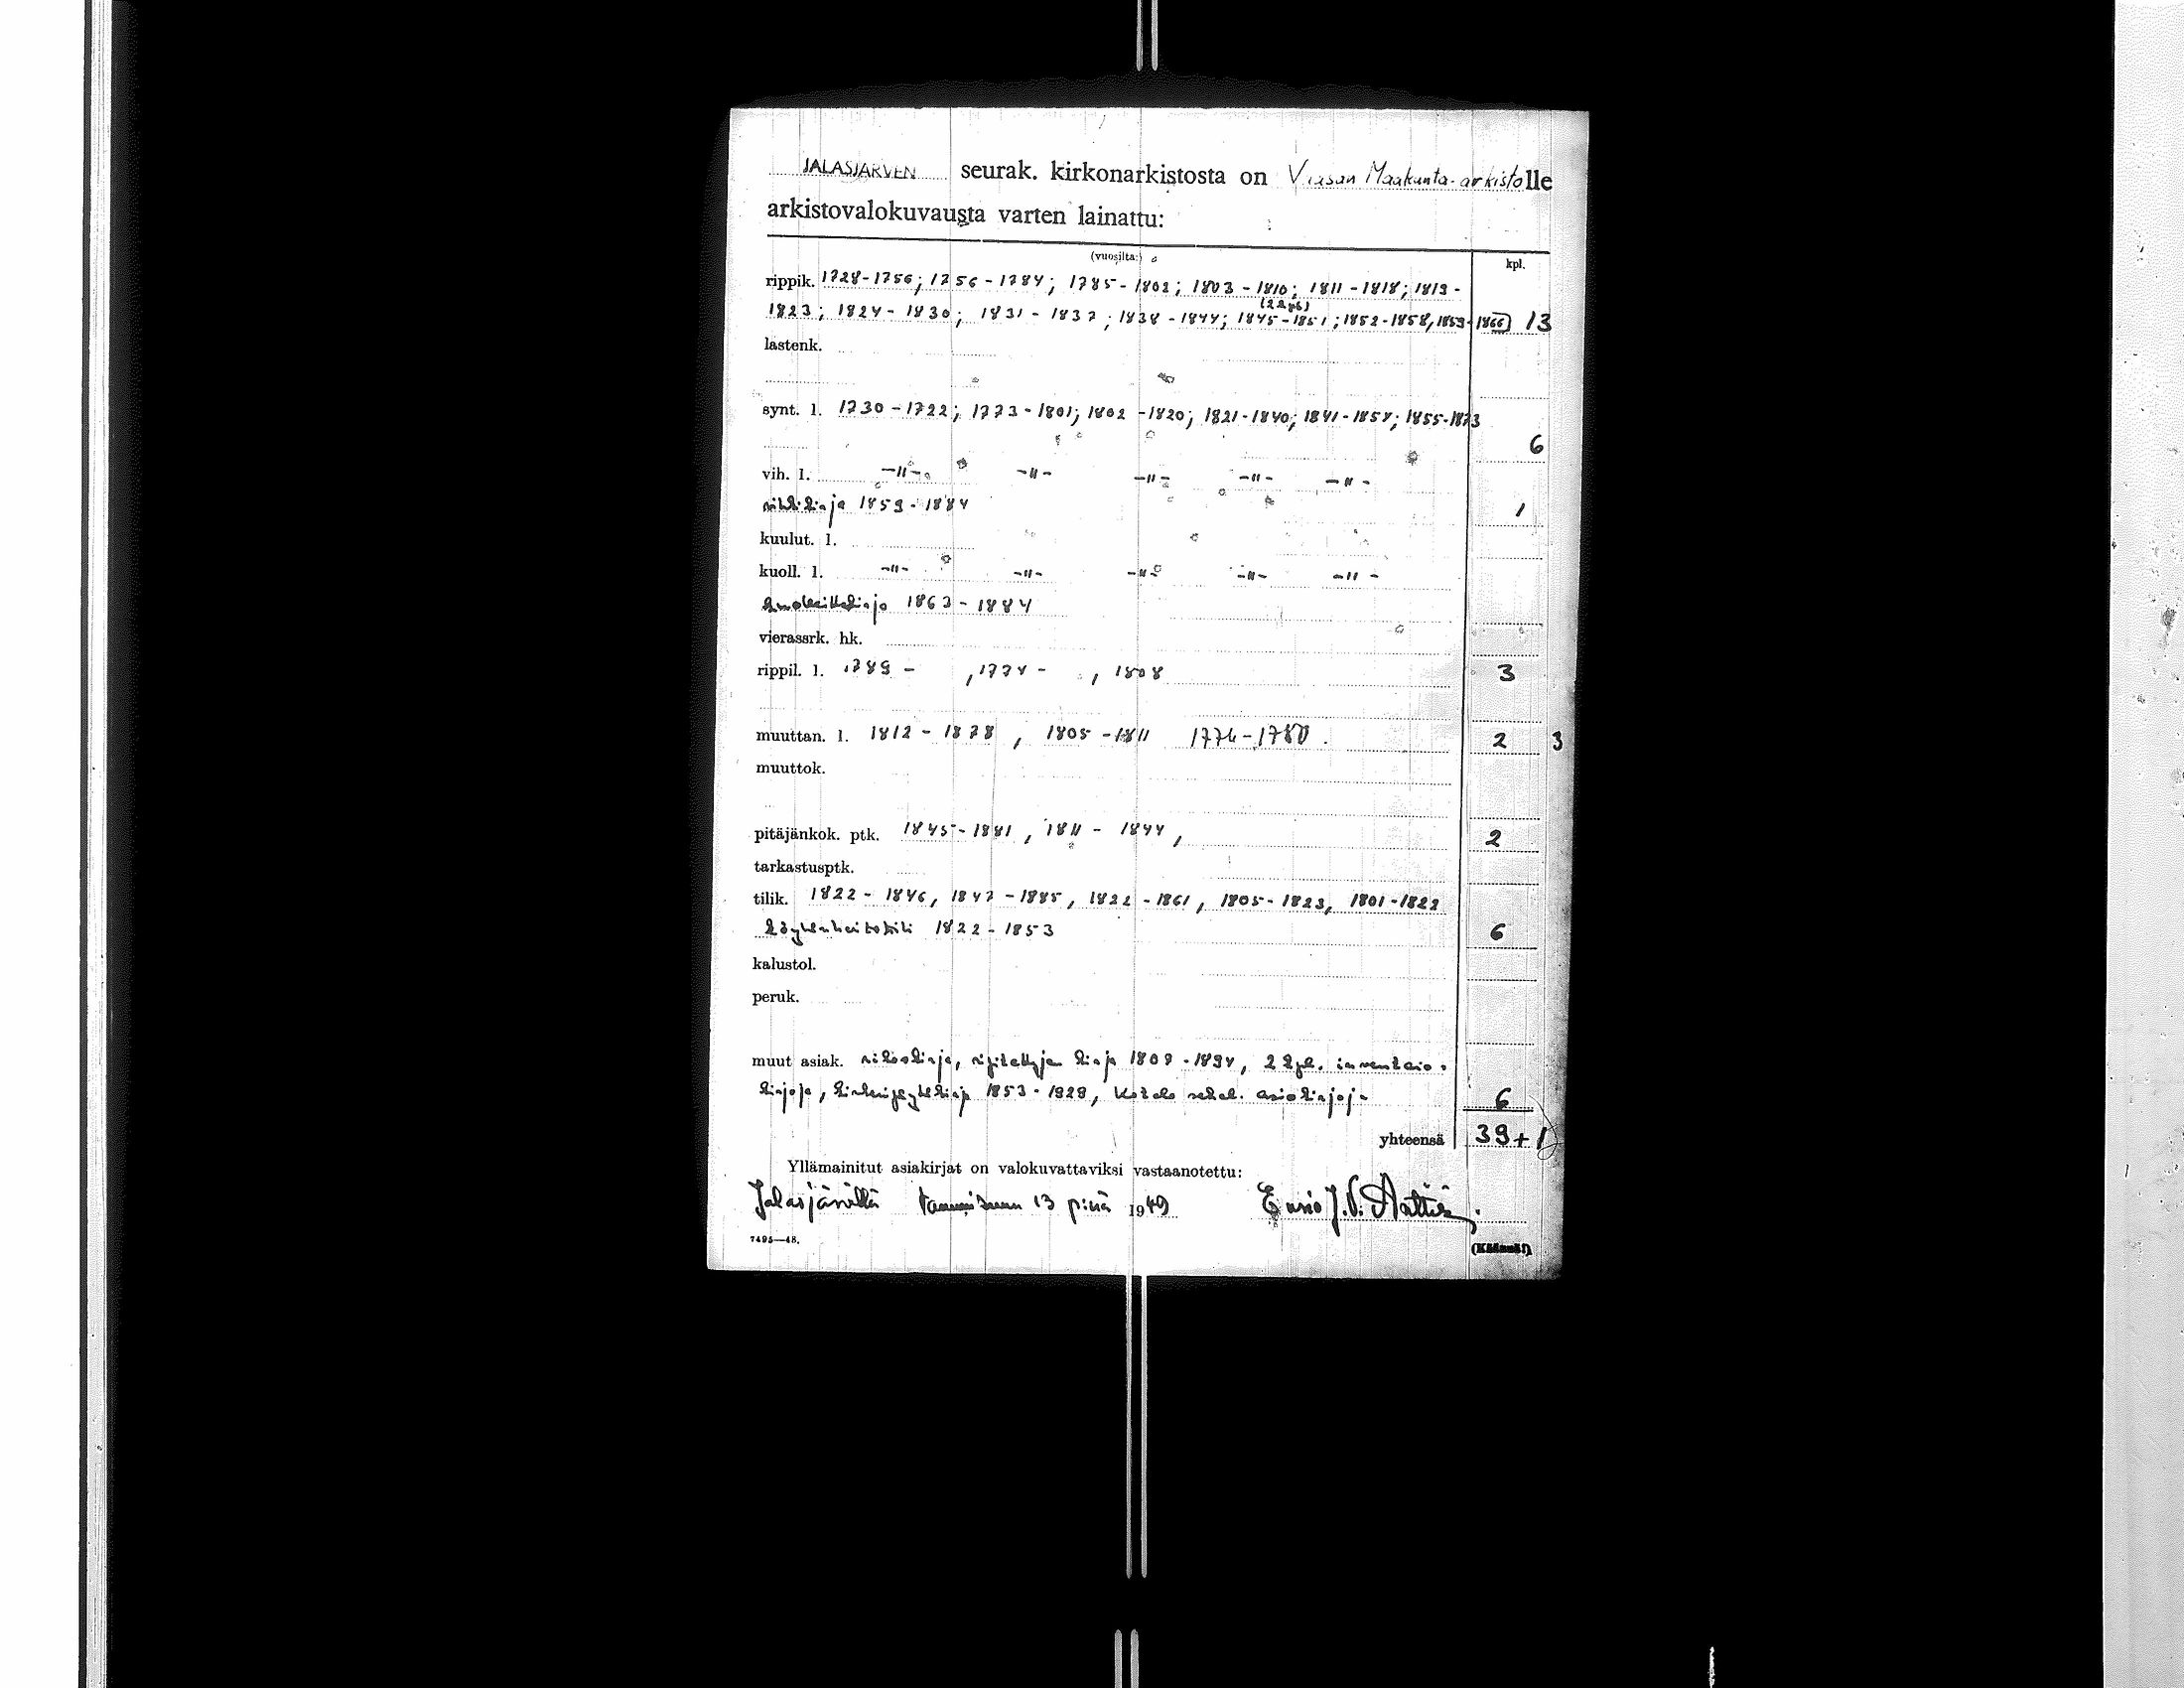 JALASJÄRVEN seurak. kirkonarkistosta on Vaasan Maakunta-arkistolle
arkistovalokuvausta varten lainattu:
(vuosilta:) kpl.
rippik. 1728-1756; 1756-1784; 1785-1802; 1803-1810; 1811-1818; 1819-
(2 kpl)
1823; 1824-1830; 1831-1837; 1838-1844; 1845-1851; 1852-1858, 1859-1866 13
lastenk.
synt. l. 1730-1722; 1773-1801; 1802-1820; 1821-1840; 1841-1854; 1855-1873
6
vih. l. -"- -"- -"- -"- -"-
vihkikirja 1859-1884 1
kuulut. l.
kuoll. l. -"- -"- -"- -"- -"-
1863-1884
vierassrk. hk.
rippil. l. 1789 - , 1774 - , 1808 3
muuttan. l. 1812-1878, 1805-1811 1774-1780. 2 3
muuttok.
pitäjänkok. ptk. 1845-1881, 1811-1844, 2
tarkastusptk.
tilik. 1822-1846, 1847-1885, 1822-1861, 1805-1823, 1801-1822
Köyhäinhoitotili 1822-1853 6
kalustol.
peruk.
muut asiak. rikoskirja, ripitettyjen kirja 1809-1894, 2 kpl. inventaario-
kirjoja, 1853-1929, Kotelo sekal. asiakirjoja 6
yhteensä 39+1
Yllämainitut asiakirjat on valokuvattaviksi vastaanotettu:
Jalasjärvellä tammikuun 13 p:nä 1949
7495—48.
(Käännä!)